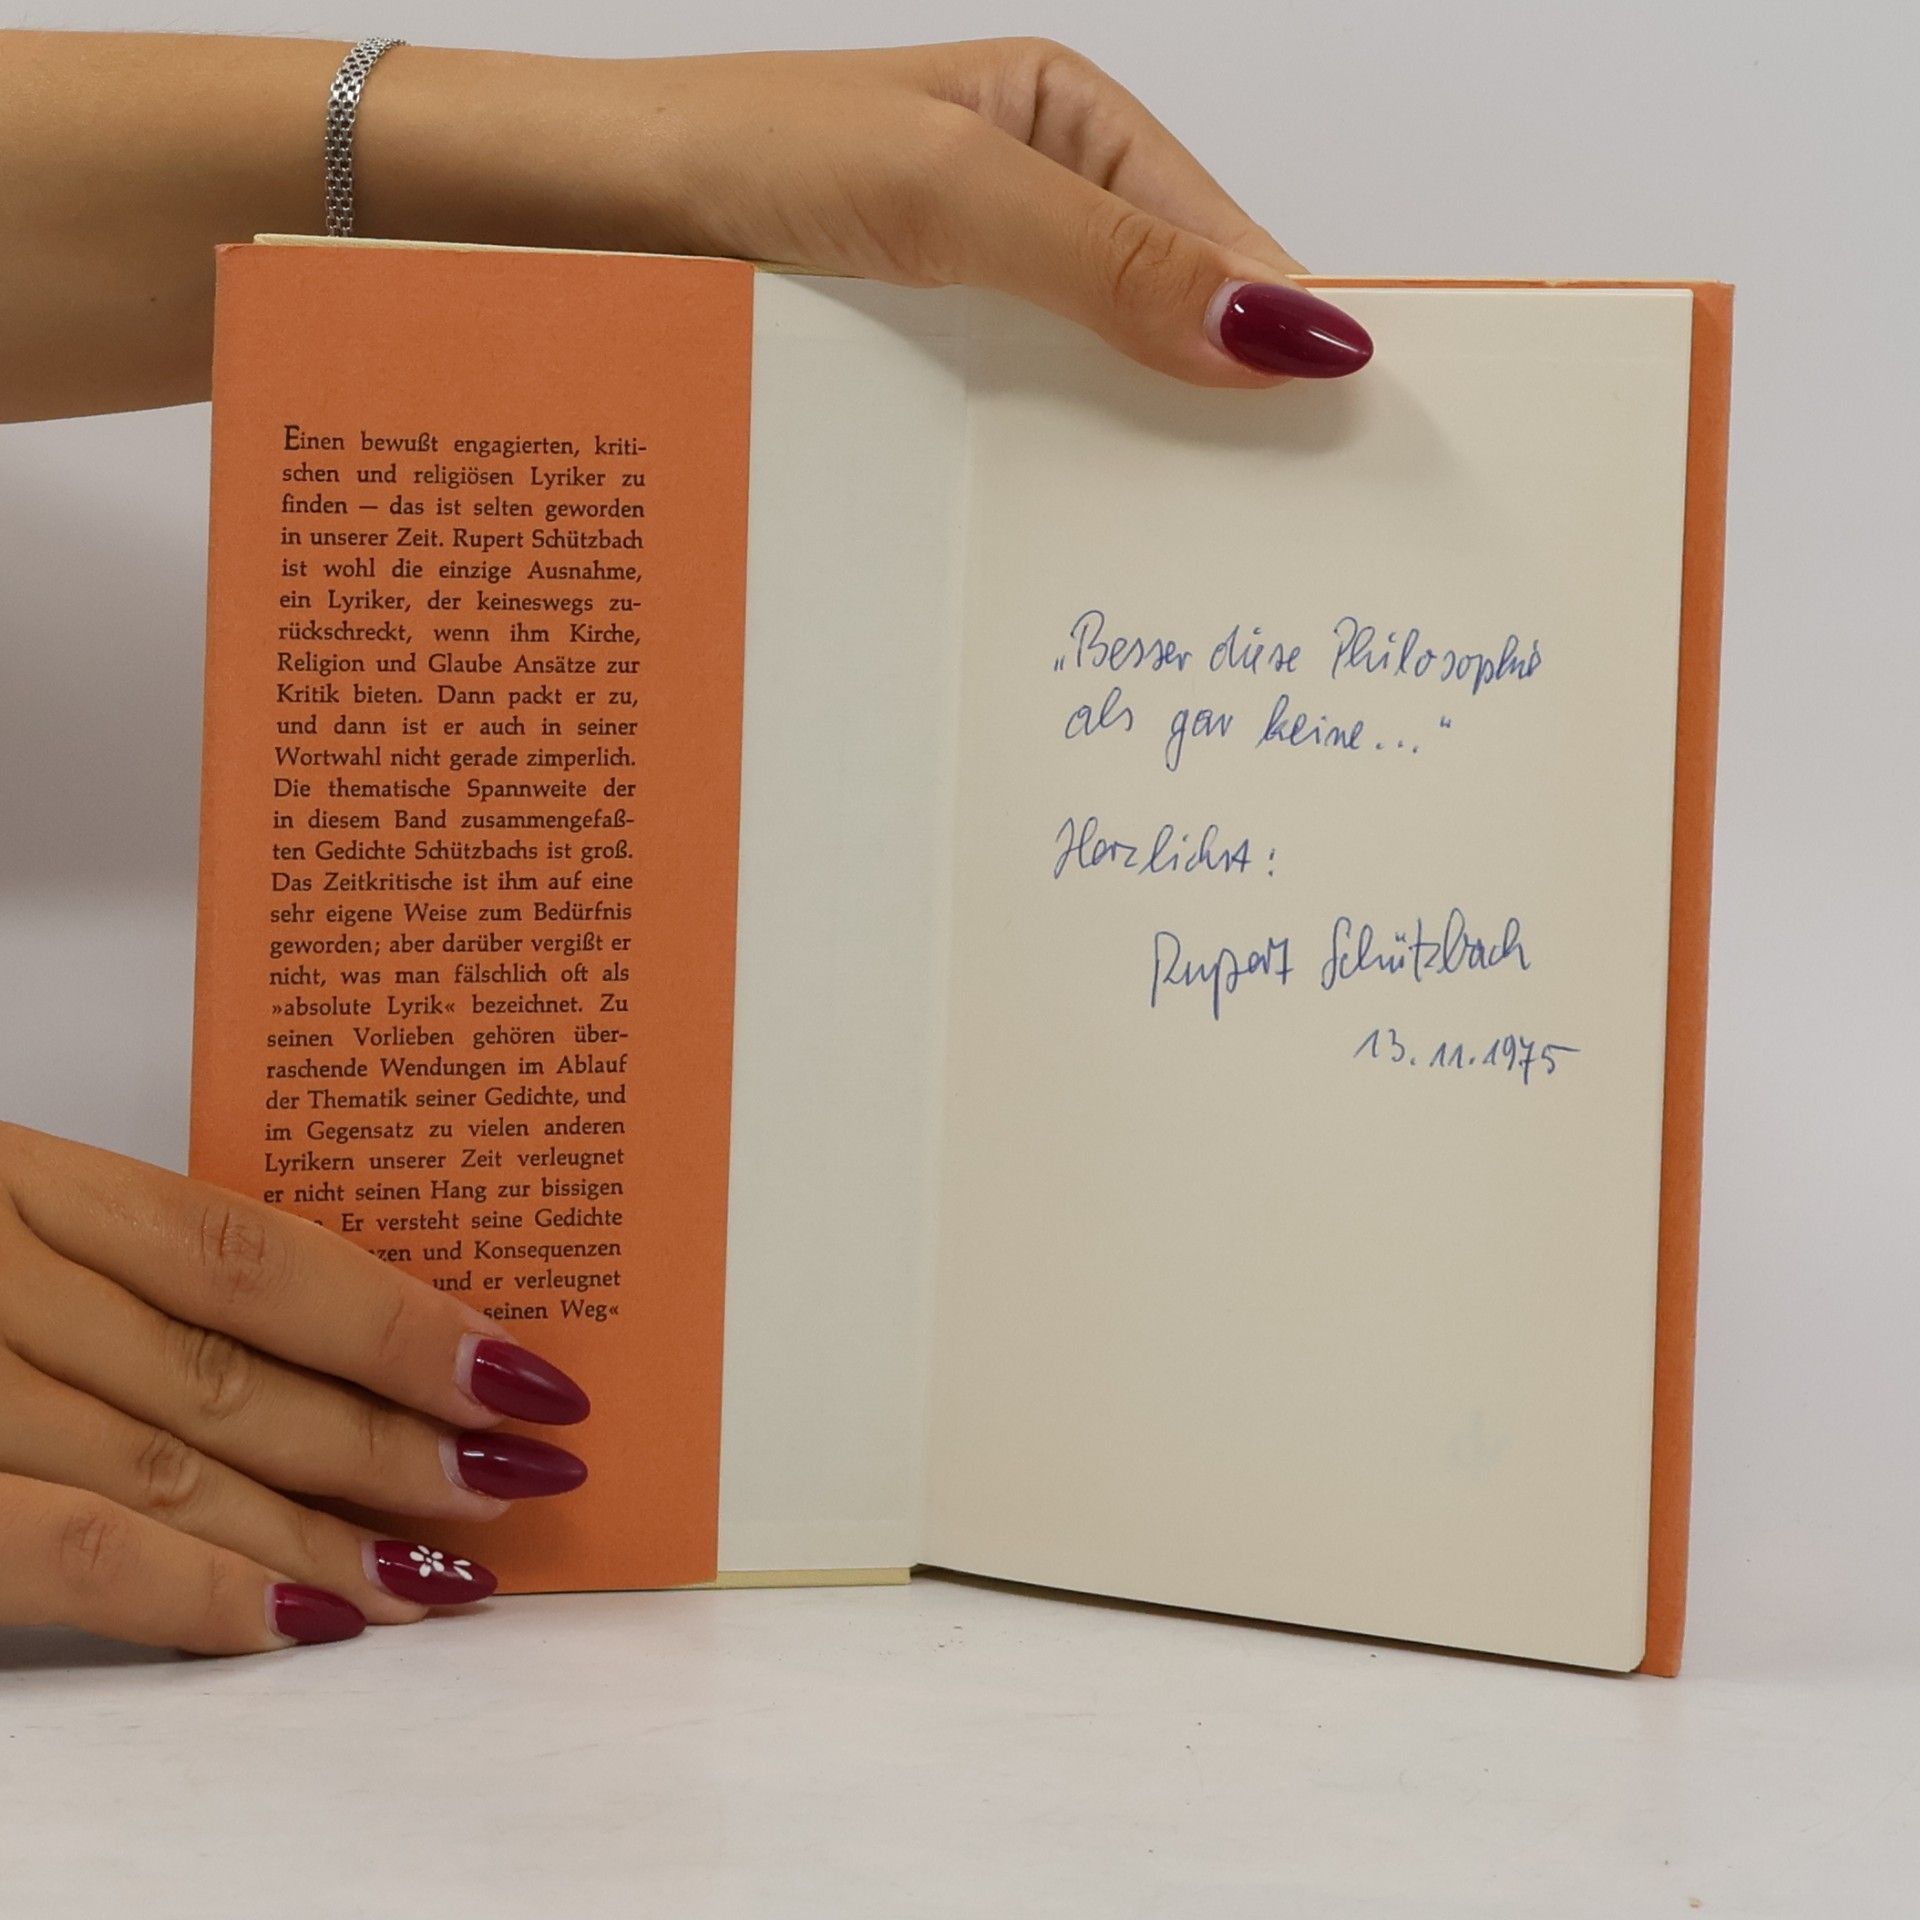 Einen bewußt engagierten, kriti-
schen und religiösen Lyriker zu
finden — das ist selten geworden
in unserer Zeit. Rupert Schützbach
ist wohl die einzige Ausnahme,
ein Lyriker, der keineswegs zu-
rückschreckt, wenn ihm Kirche,
Religion und Glaube Ansätze zur
Kritik bieten. Dann packt er zu,
und dann ist er auch in seiner
Wortwahl nicht gerade zimperlich.
Die thematische Spannweite der
in diesem Band zusammengefaß-
ten Gedichte Schützbachs ist groß.
Das Zeitkritische ist ihm auf eine
sehr eigene Weise zum Bedürfnis
geworden; aber darüber vergißt er
nicht, was man fälschlich oft als
»absolute Lyrik« bezeichnet. Zu
seinen Vorlieben gehören über-
raschende Wendungen im Ablauf
der Thematik seiner Gedichte, und
im Gegensatz zu vielen anderen
Lyrikern unserer Zeit verleugnet
er nicht seinen Hang zur bissigen
Er versteht seine Gedichte
und Konsequenzen
und er verleugnet
seinen Weg«
„Besser diese Philosophie
als gar keine..."
Herzlichst:
Rupert Schützbach
13.11.1975